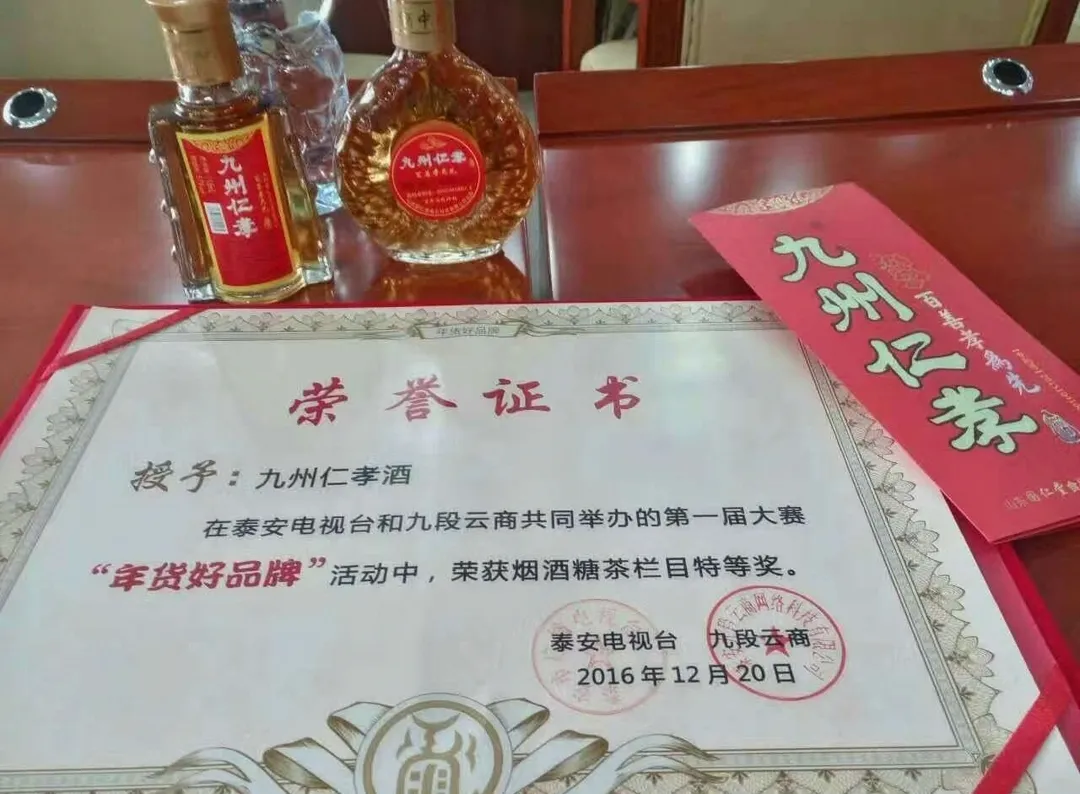 九州仁孝
九州仁孝
九州仁孝
百善孝為先
年货好品牌
荣誉证书
授予：九州仁孝酒
在泰安电视台和九段云商共同举办的第一届大赛
“年货好品牌”活动中，荣获烟酒糖茶栏目特等奖。
泰安电视台 九段云商
2016年12月20日